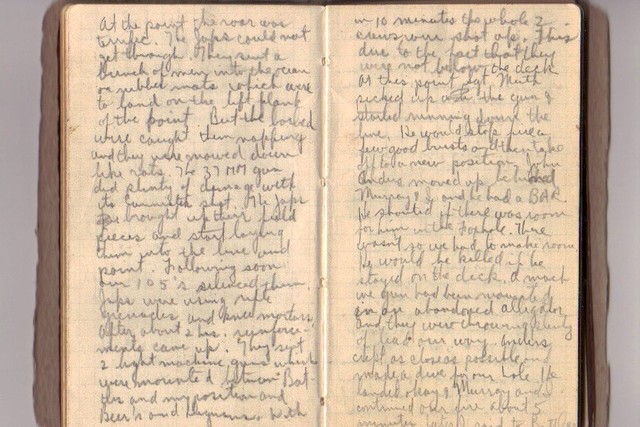 At the point the roar was
terrific. The Japs could not
get through. They sent a
bunch of men into the ocean
on rubber mats which were
to land on the left flank
of the point. But the boys
were caught them napping
and they were mowed down
like rats. The 37 MM gun
did plenty of damage with
its cannister shot. The Japs
brought up their field
pieces and start laying
them into the line and
point. Following soon
our 105's silenced them
Japs were using rifle
grenades and knee mortars
after about 2 hrs. reinforce-
ments came up. They sent
2 light machine guns which
were mounted between Bat-
tles and my position and
Beer's and With
in 10 minutes the whole 2
crews were shot up. This
due to the fact that they
were not below the deck
At this point Sgt. Muth
picked up the gun &
started running down the
line. He would stop fire a
few good bursts and then take
off to a new position. John
Anders moved up behind
Murray & I and he had a BAR.
He shouted if there was room
for him in the Foxhole. There
wasn't so we had to make room
He would be killed if he
stayed on the deck, a mach
ine gun had been mounted
in an abandoned alligator
and they were throwing plenty
of lead our way. Anders
crept as close as possible and
made a dive for our hole. He
landed okay & Murray and I
continued our fire about 5
minutes later I said to